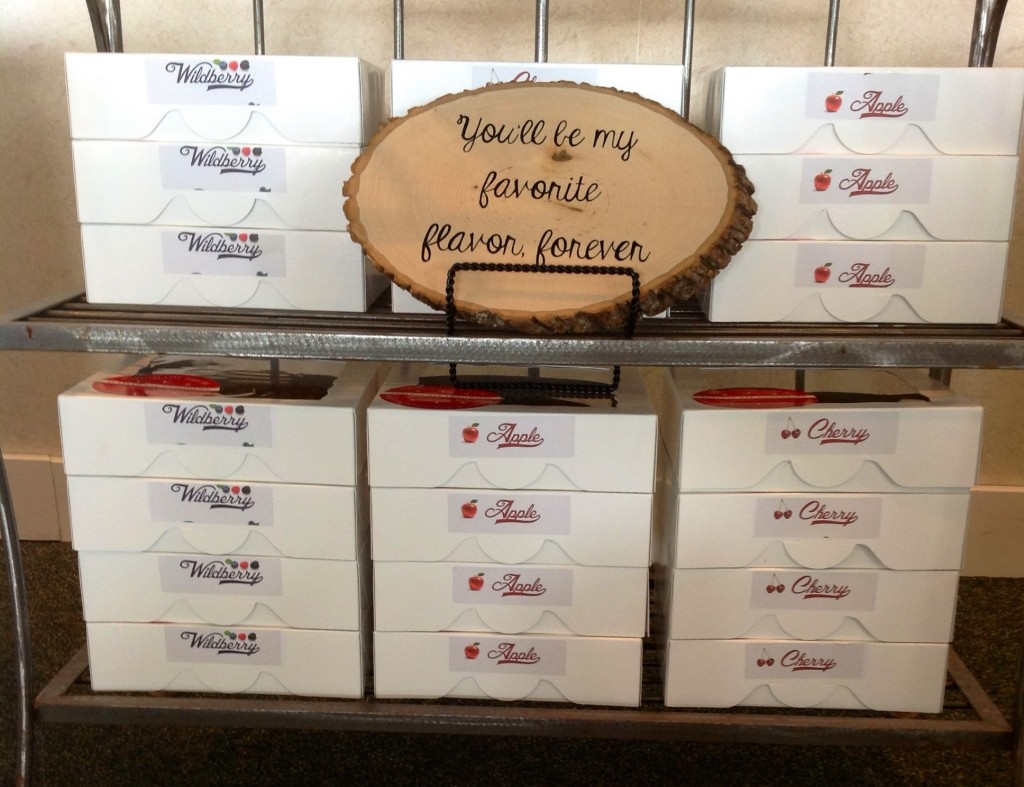 Wildberry
Cherry
Apple
Wildberry
Apple
Wildberry
Apple
You'll be my
favorite
flavor, forever
Wildberry
Apple
Cherry
Wildberry
Apple
Cherry
Wildberry
Apple
Cherry
Wildberry
Apple
Cherry